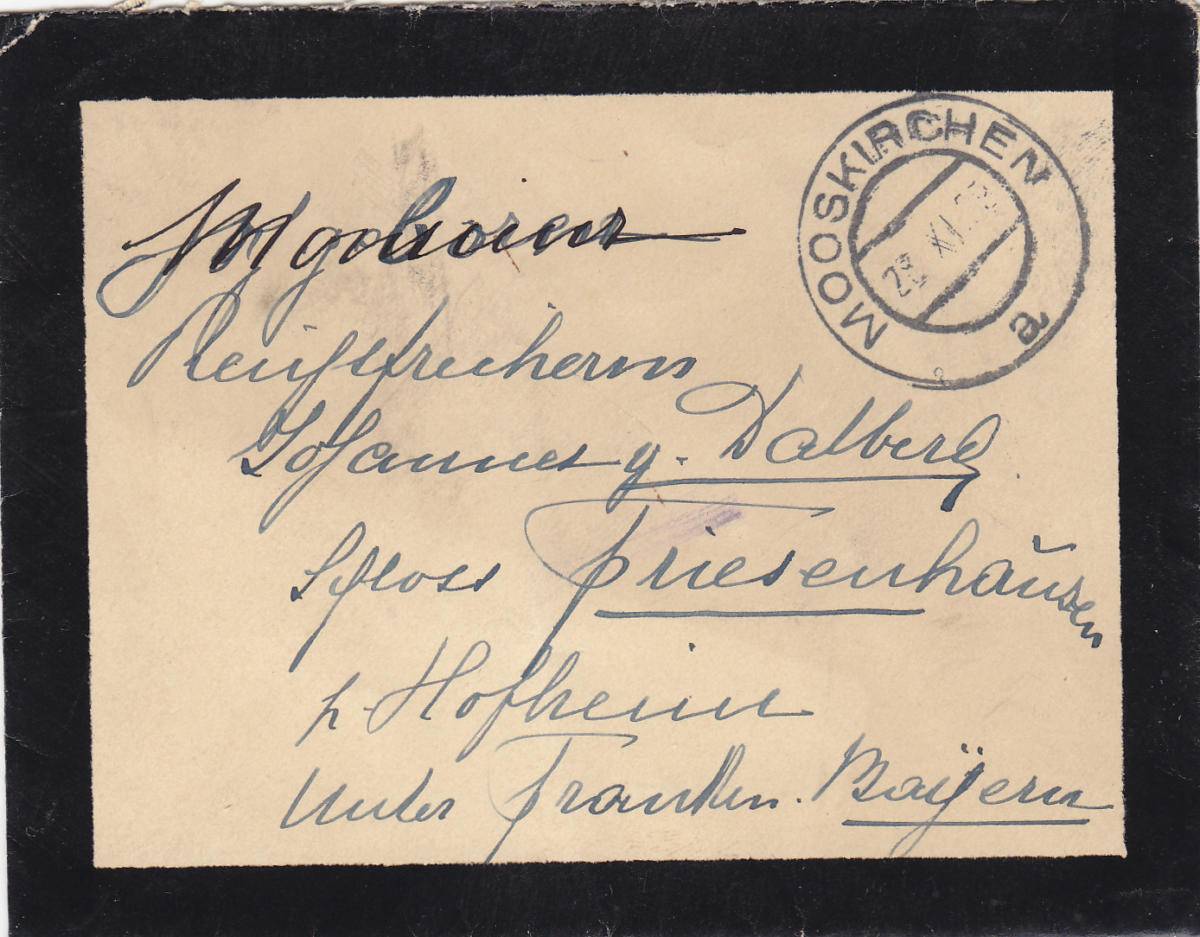 Hochgeboren
Reichsfreiherrn
Johannes v. Dalberg
Schloss Friesenhausen
b. Hofheim
Unter Franken. Bayern
MOOSKIRCHEN
23. XI.